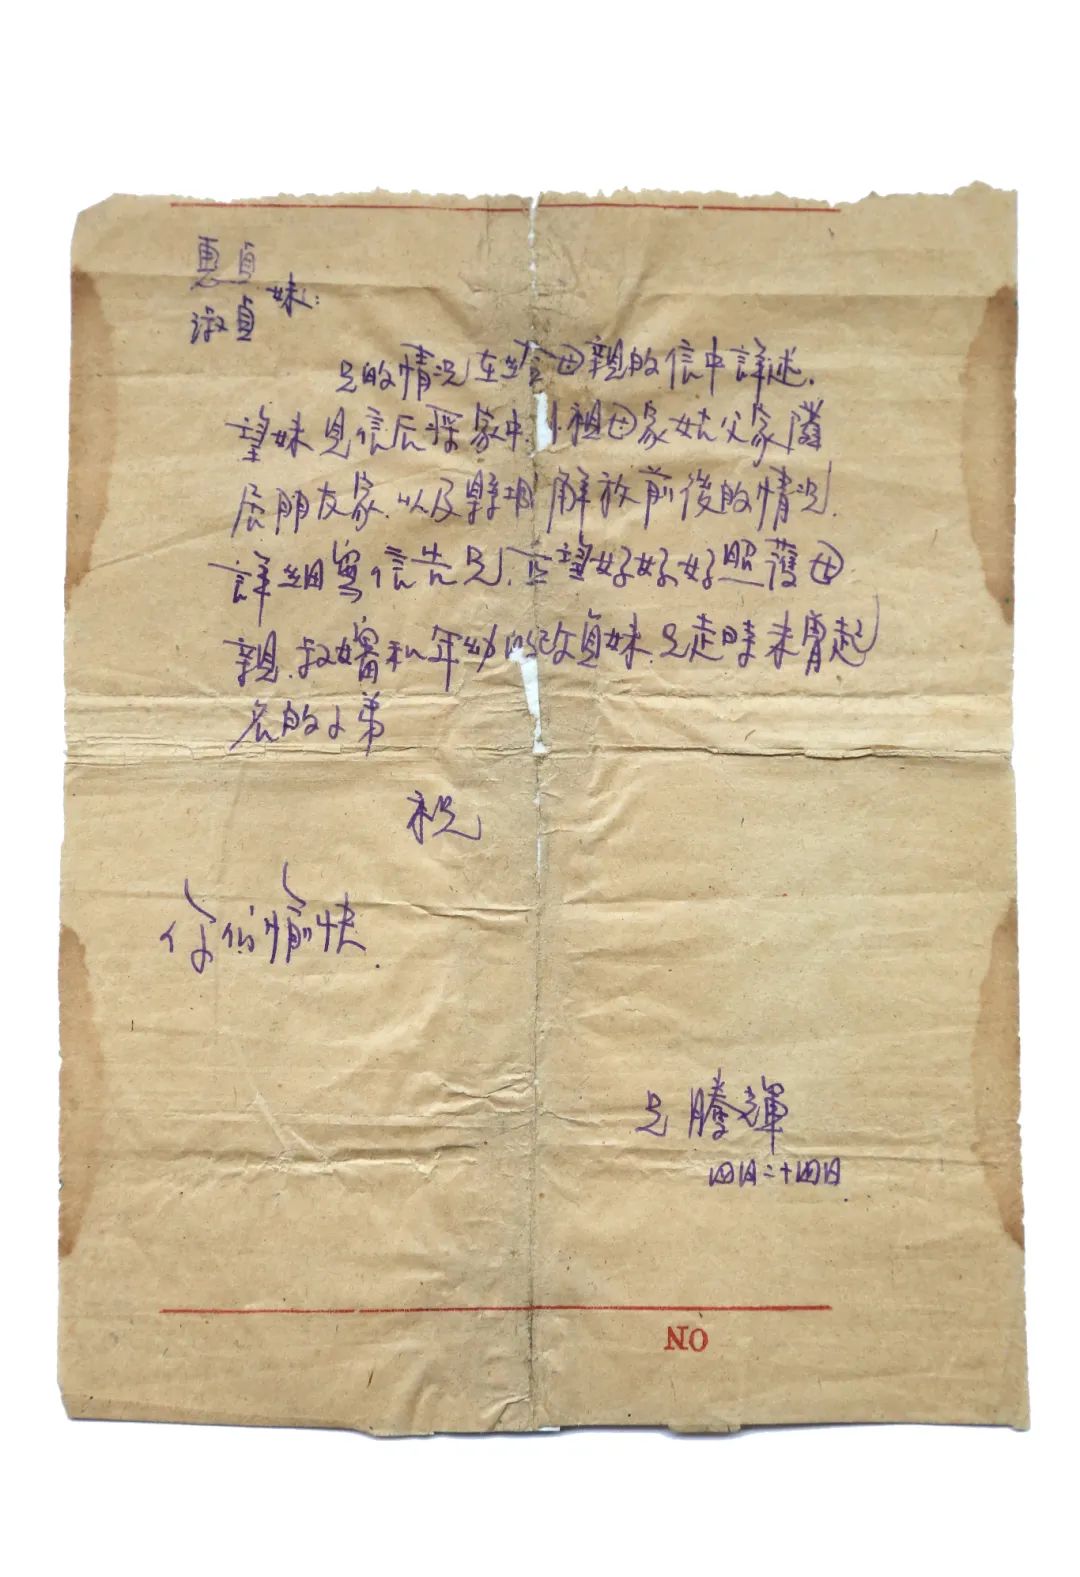 惠貞
淑貞 妹:
兄的情况在給母親的信中詳述.
望妹見信后 家中 祖母家姑父家
居朋友家.以及縣 解放前後的情况.
詳細寫信告兄. 望好好好照護母
親.叔嬸和年幼的改貞妹.兄走時未 起
名的小弟
祝
你們愉快.
兄 騰輝
四月二十四日
NO